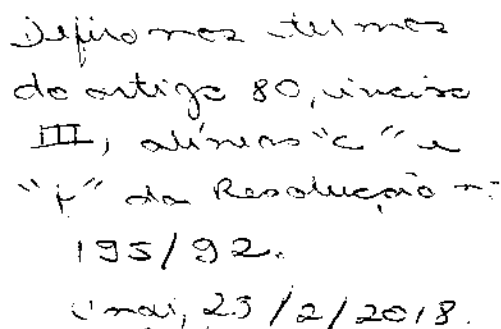 Defiro nos termos
do artigo 80, inciso
III, alíneas "c" e
"f" da Resolução nº
195/92.
23/2/2018.